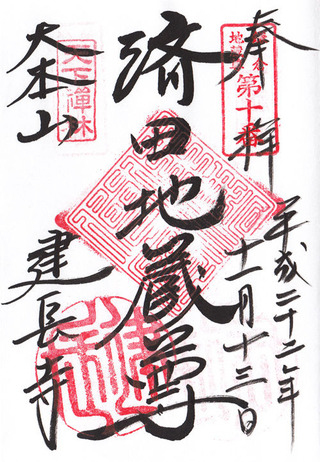 奉拝
第十番
平成二十二年
十一月十三日
済田地蔵尊
天下禅林
大本山
建長寺